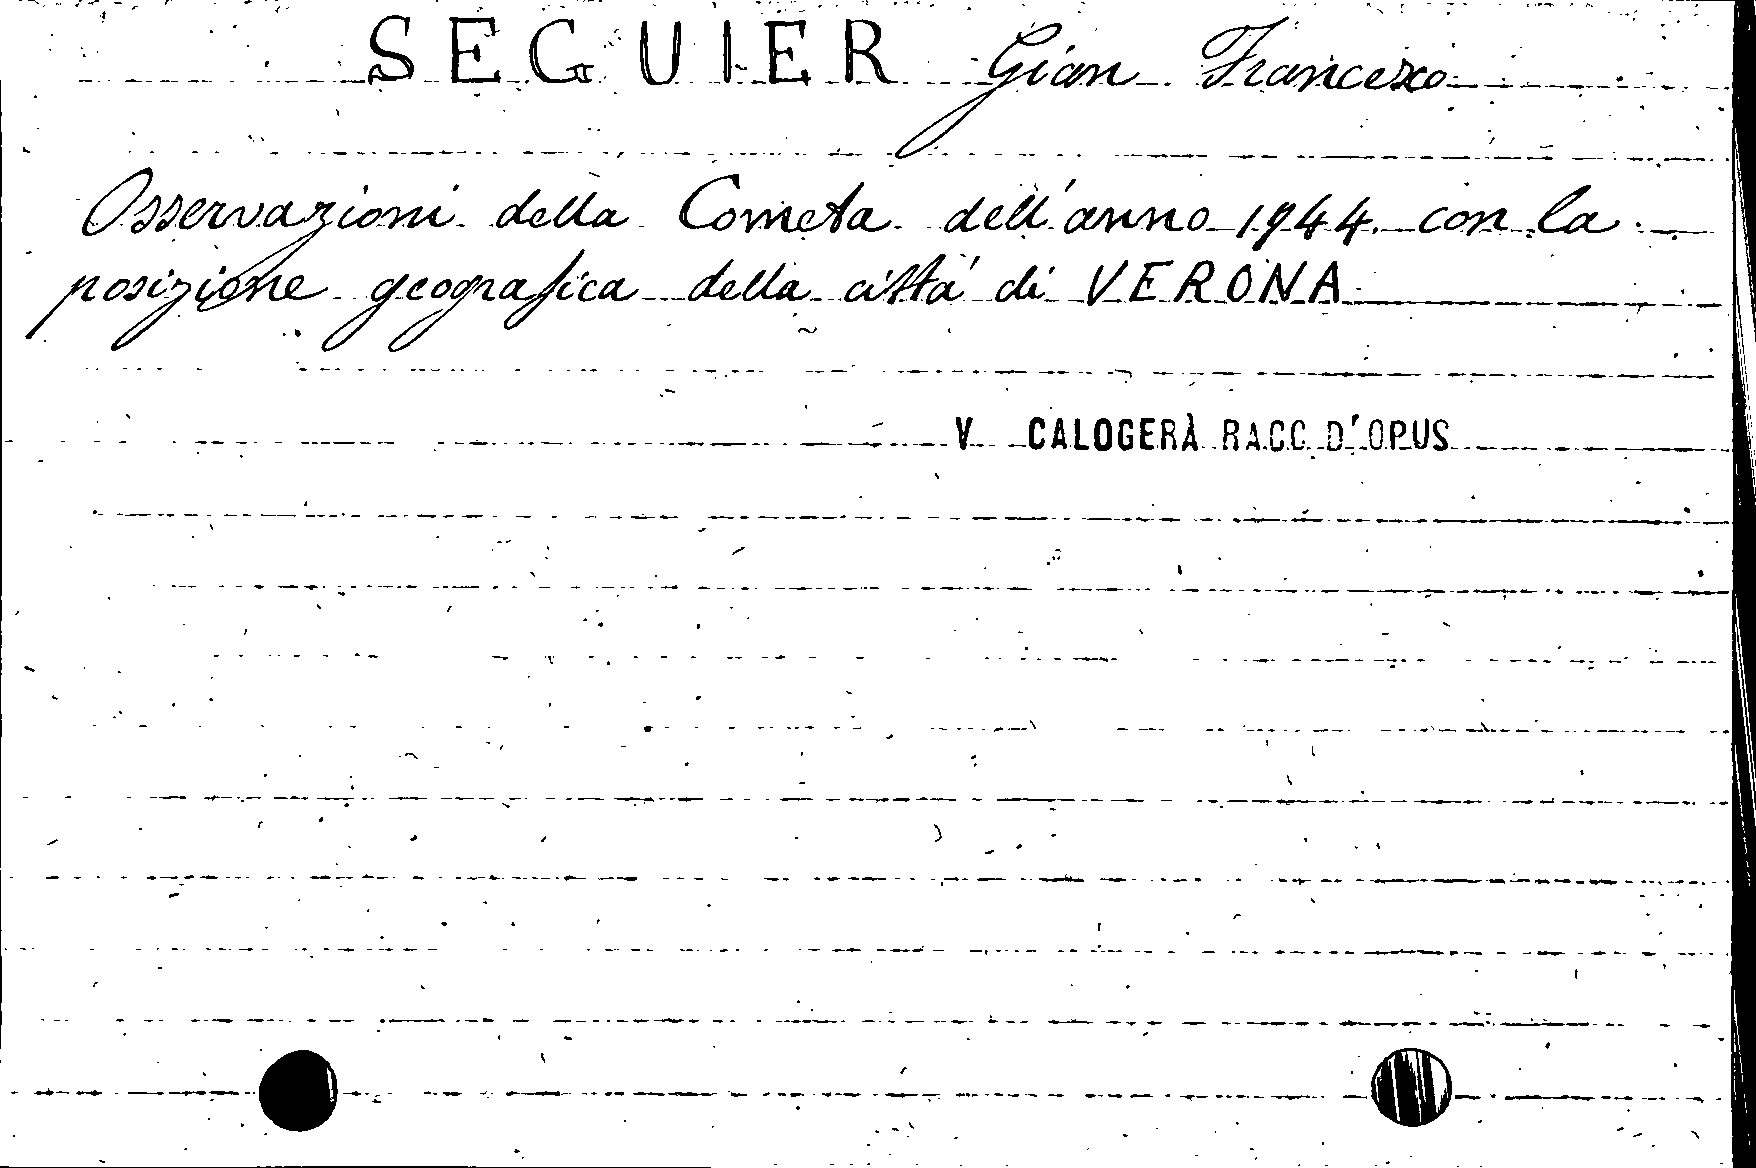 SEGUIER Gian Francesco
Osservazioni della Cometa dell'anno 1944 con la
posizione geografica della città di VERONA
V CALOGERÀ RACC D'OPUS